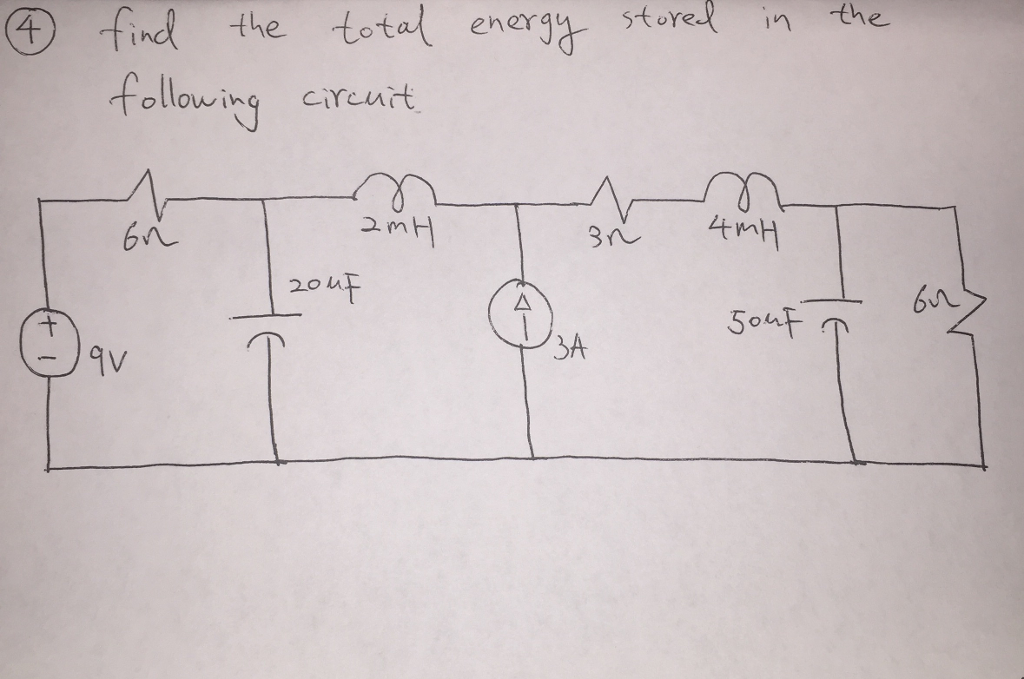 ④ find the total energy stored in the
following circuit
6Ω 2mH 3Ω 4mH
20uF
+
-
9V
3A
50uF
6Ω